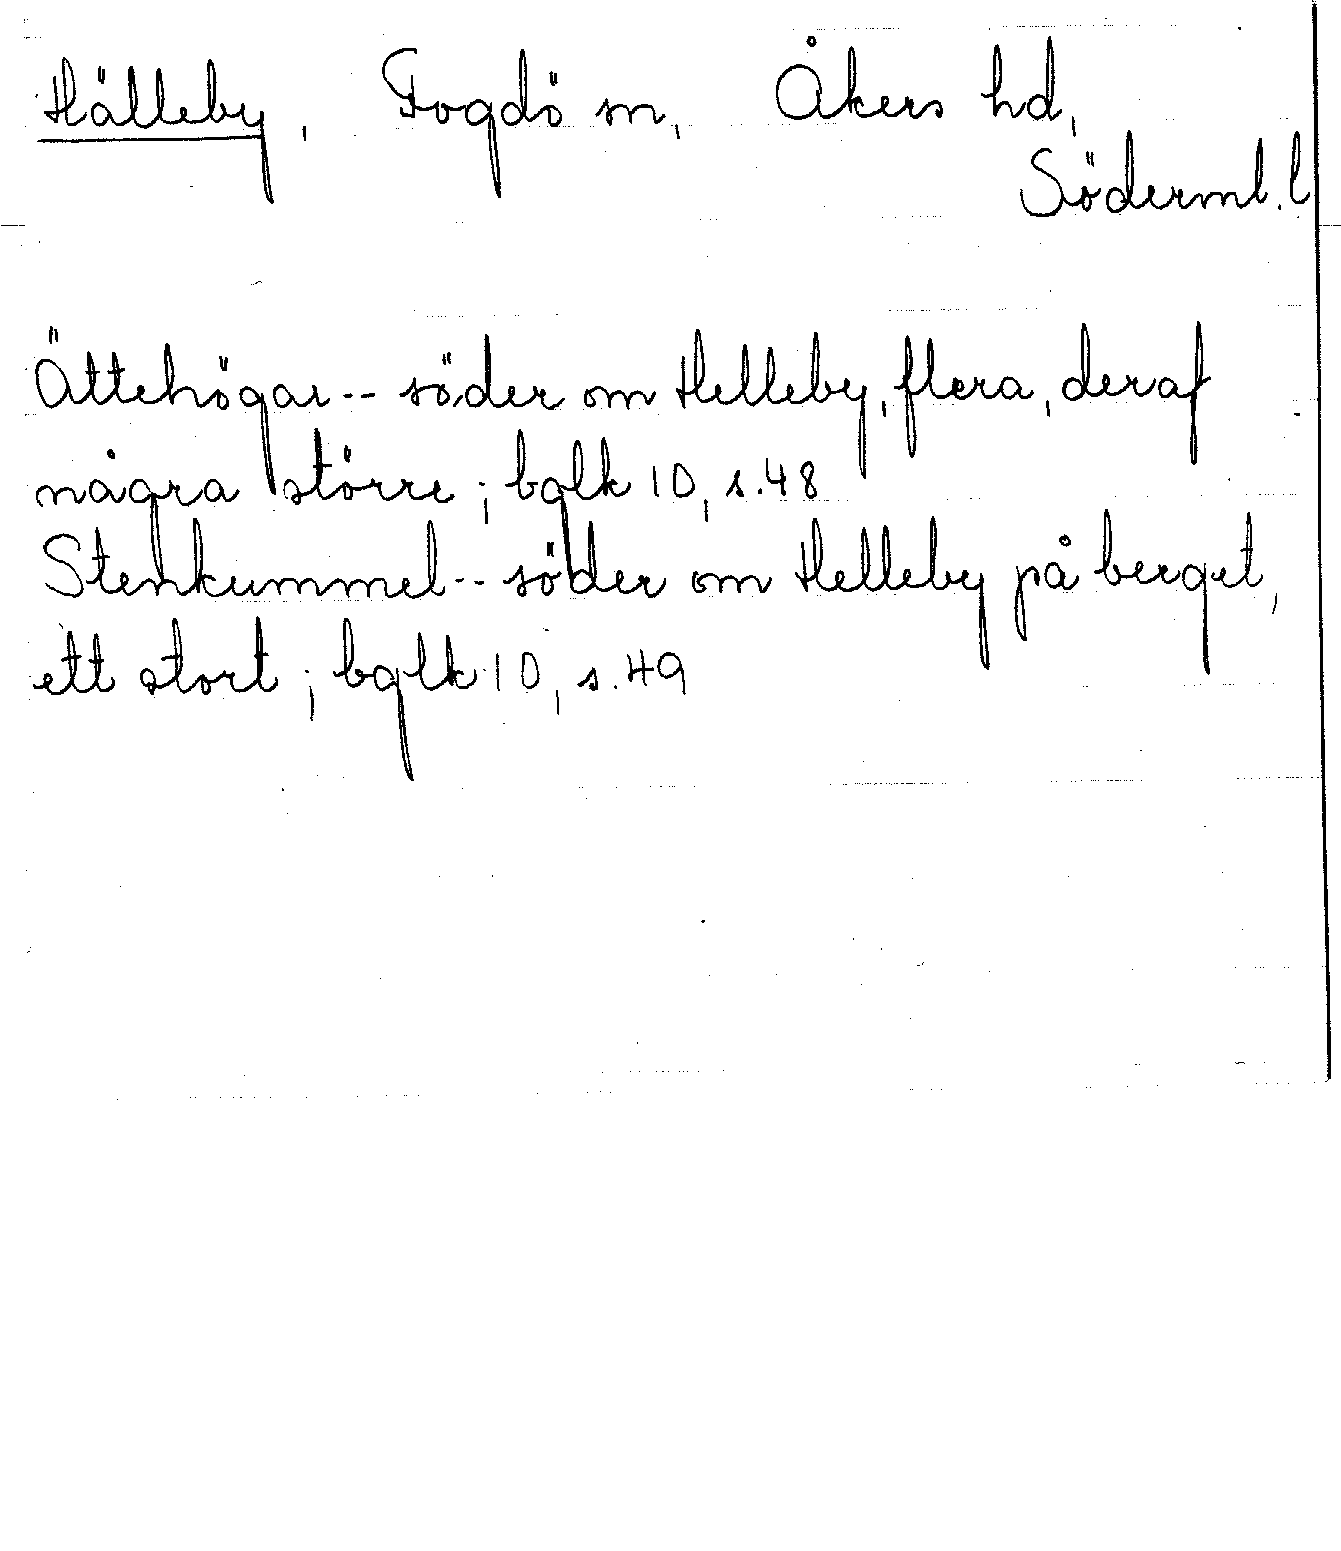 Hälleby, Fogdö sn, Åkers hd,
Söderml. l
Ättehögar -- söder om Helleby, flera, deraf
några större; bqlk 10, s. 48
Stenkummel -- söder om Helleby på berget,
ett stort; bqlk 10, s. 49